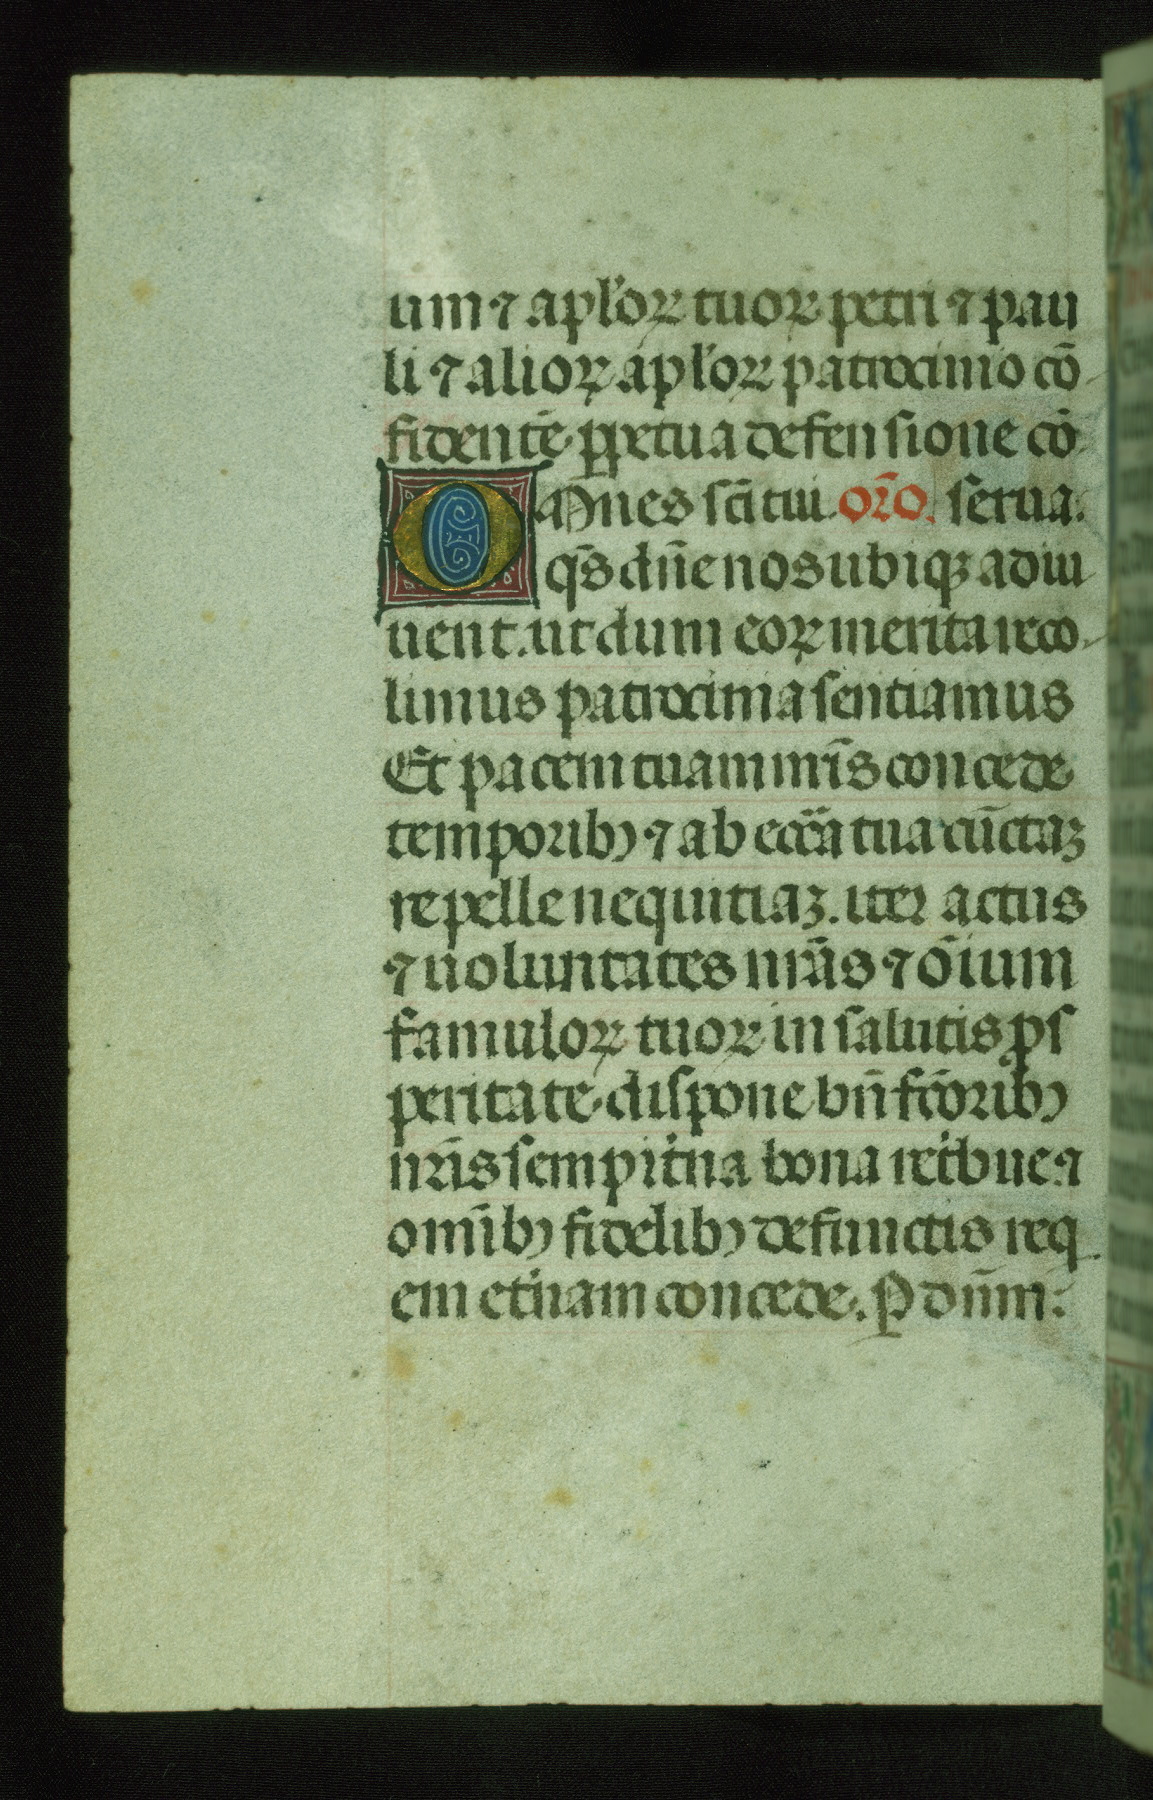 um ⁊ apl'oꝝ tuoꝝ petri ⁊ pau
li ⁊ alioꝝ apl'oꝝ patrocinio cō
fidentē ꝑpetua defensione cō
OMnes scī tui orō. serua.
q̄s dn̄e nos ubiqꝫ adiu
uent. ut dum eoꝝ merita reco
limus patrocinia sentiamus
Et pacem tuam nrīs concede
temporibꝰ ⁊ ab ecc̄a tua cūctaꝫ
repelle nequitiaꝫ. iter actus
⁊ uoluntates nrās ⁊ oīum
famuloꝝ tuoꝝ in salutis ꝓs
peritate dispone bn̄fcōribꝰ
nrīs sempit'na bona ret'bue ⁊
omībꝰ fidelibꝰ defunctis req
em et'nam concede. P dnm̄: